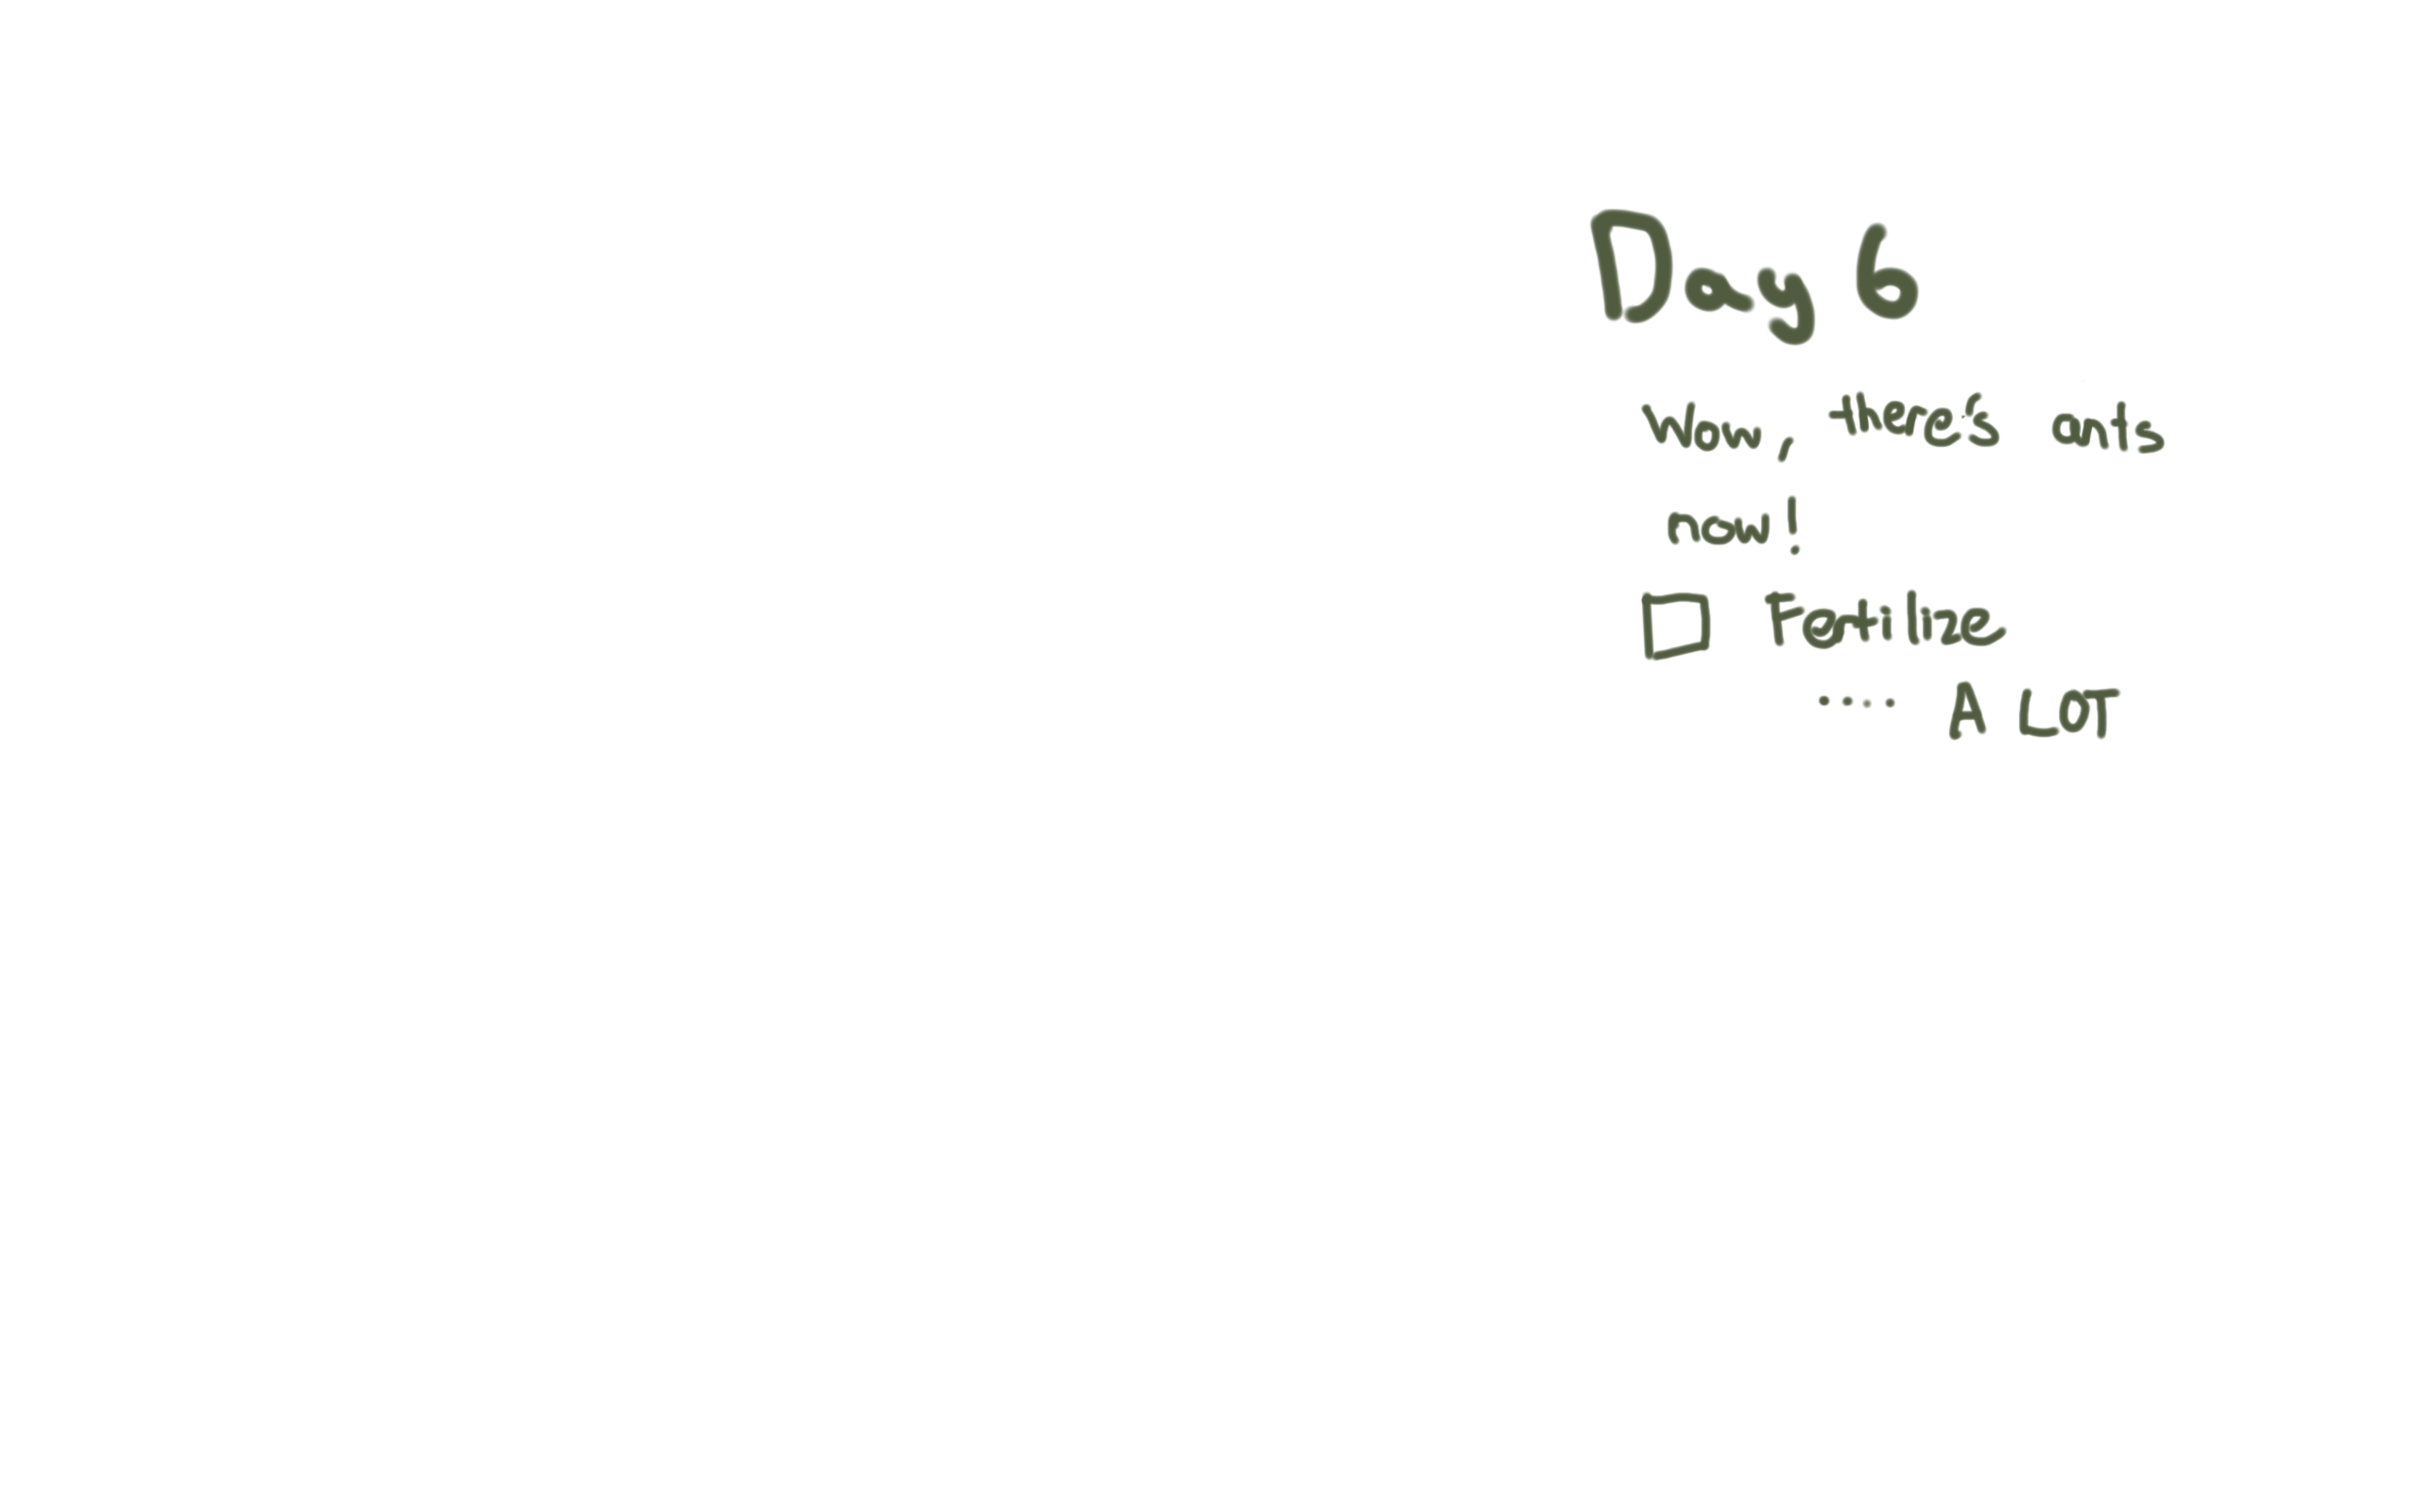 Day 6
Wow, there's ants
now!
Fertilize
.... A LOT